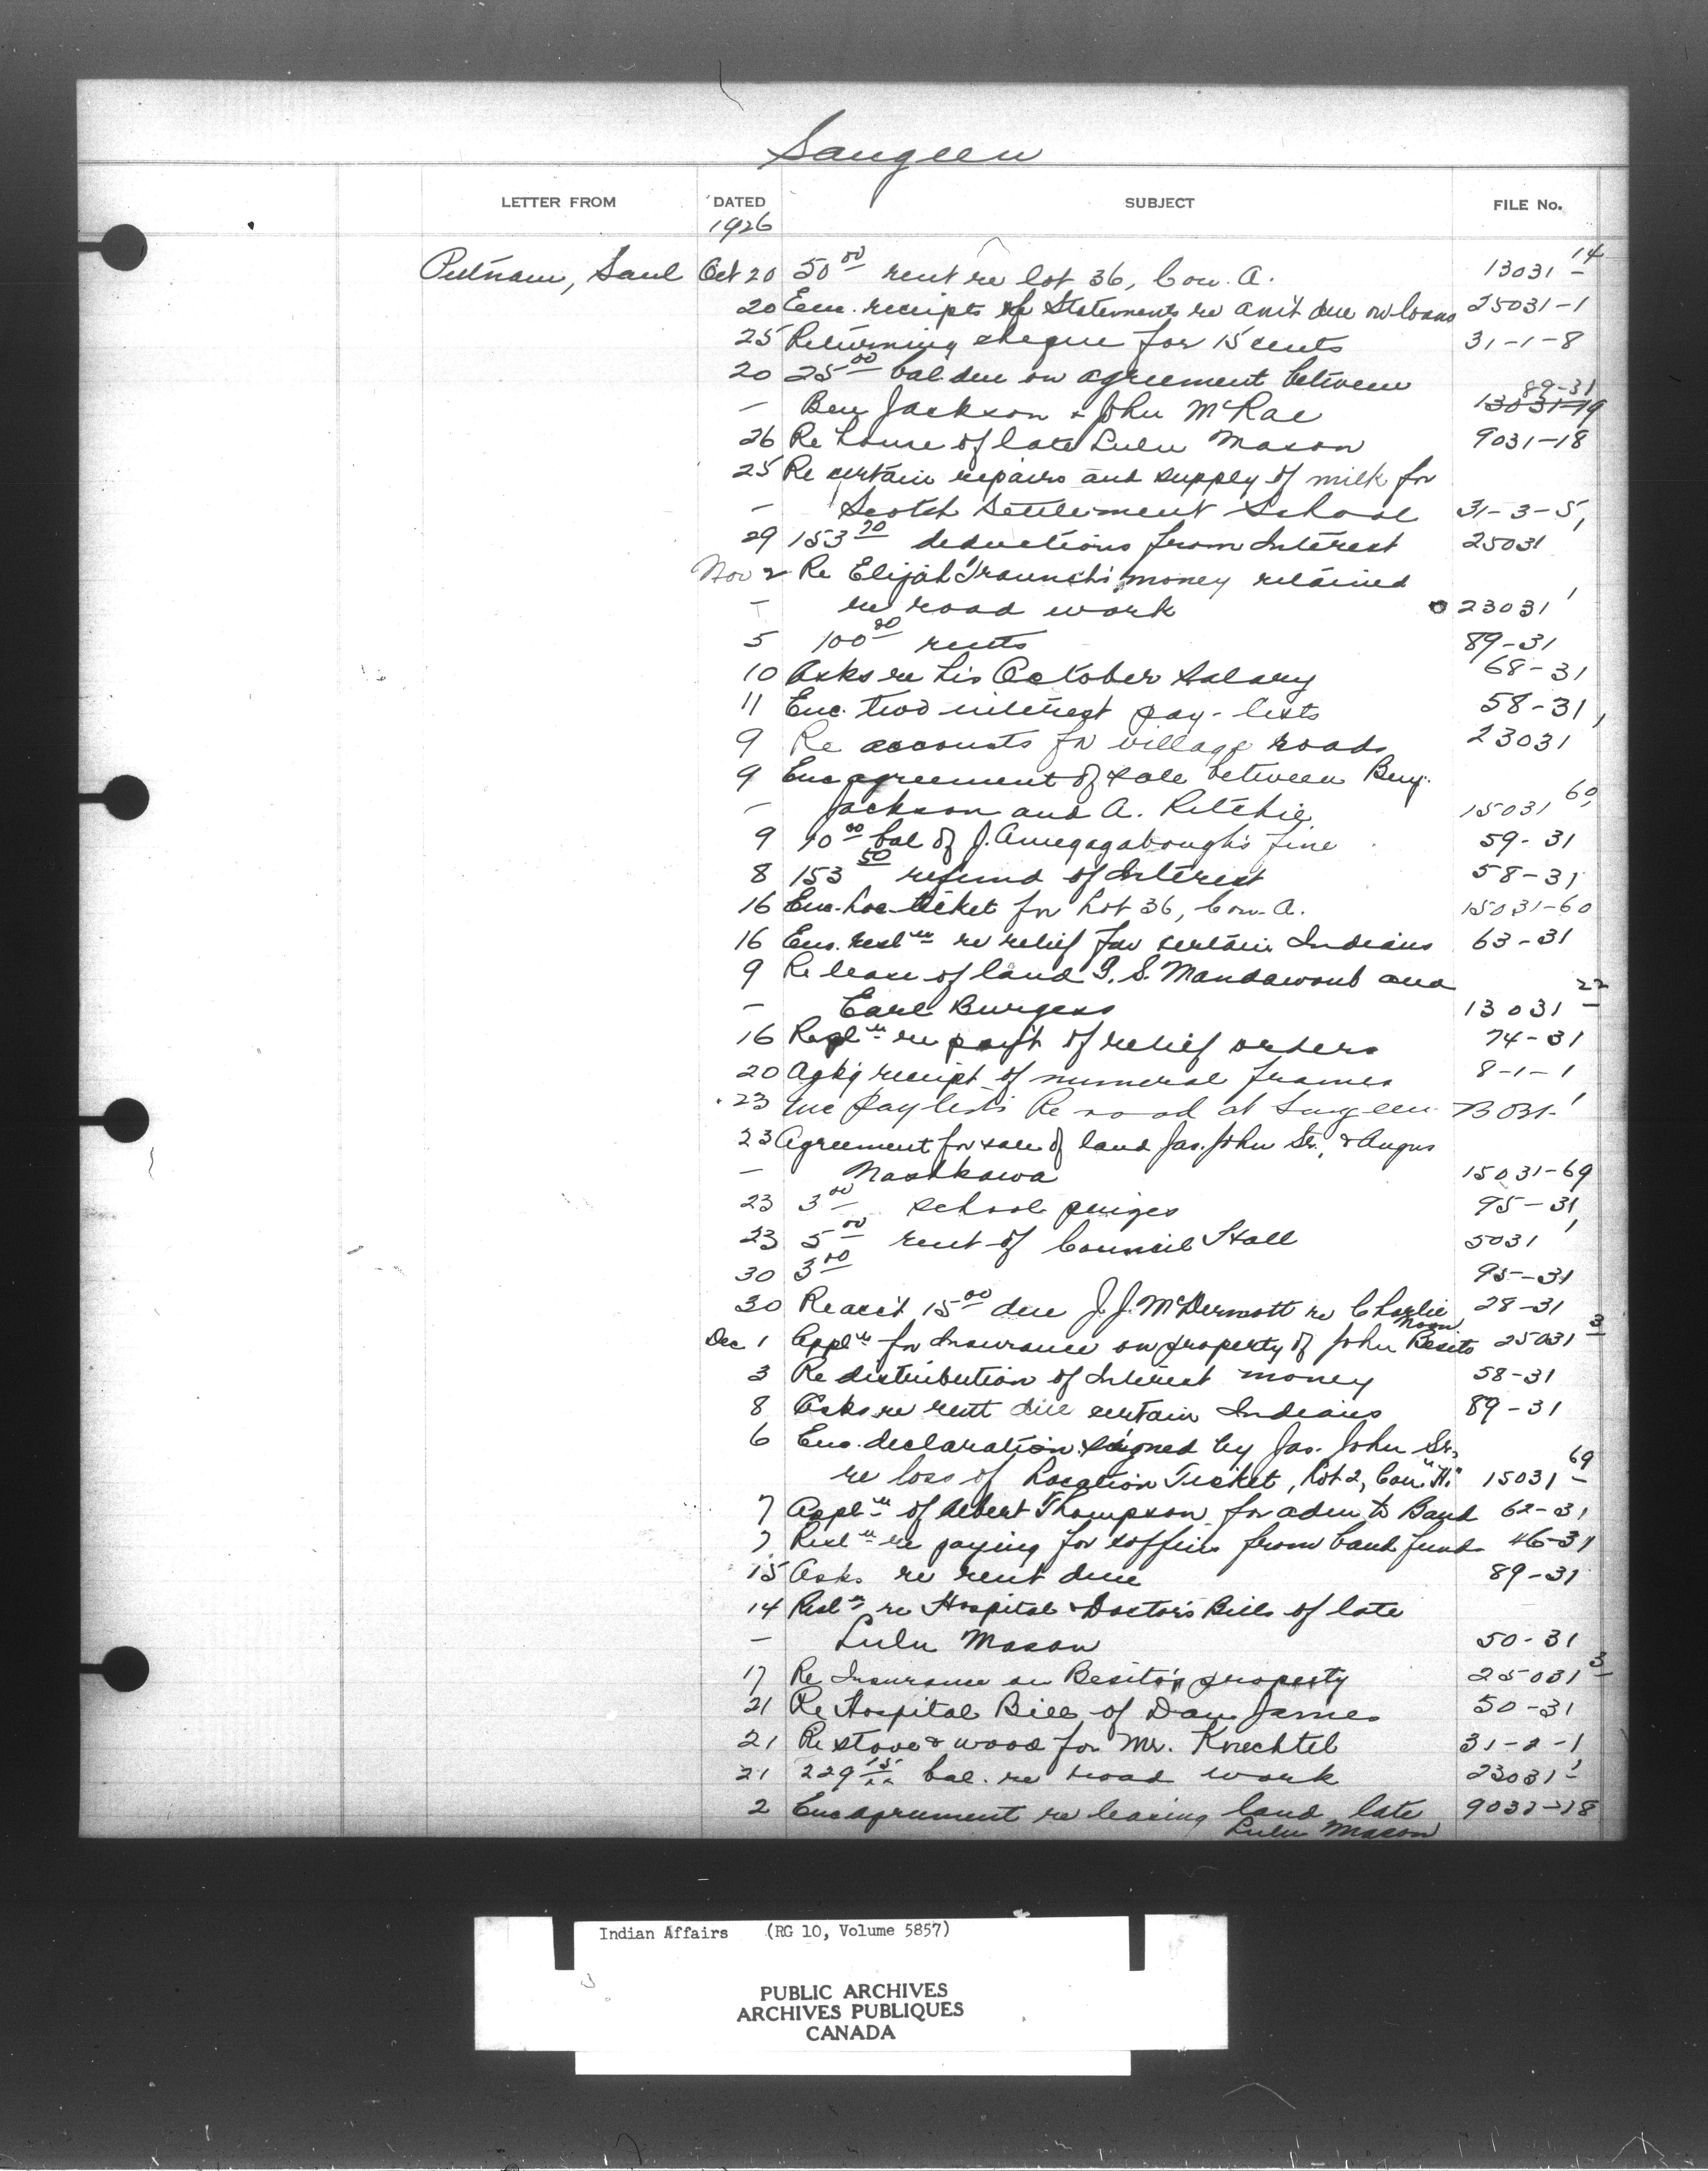 Saugeen
LETTER FROM DATED SUBJECT FILE No.
1926
Putnam, Saul Oct 20 50 00 rent re lot 36, Con. A. 13031-14
20 Enc. receipts & Statements re am't due on loans 25031-1
25 Returning cheque for 15 cents 31-1-8
20 25 00 bal. due on agreement between 89-31
— Ben Jackson & John McRae 13031-19
26 Re house of late Lulu Mason 9031-18
25 Re certain repairs and supply of milk for
— Scotch Settlement School 31-3-5,
29 153 deductions from Interest 25031
Nov 2 Re Elijah money retained
— re road work 23031 1
5 100 rents 89-31
10 Asks re his October salary 68-31
11 Enc. two interest pay-lists 58-31,
9 Re accounts for village roads 23031
9 Enc agreement of sale between Benj.
— Jackson and A. Ritchie 15031 60
9 10 00 bal of J. Amegagabough's fine 59-31
8 153 50 refund of Interest 58-31
16 Enc. Loc. ticket for Lot 36, Con. A. 15031-60
16 Enc. resl'n re relief for certain Indians 63-31
9 Re lease of land Mandawoub and
— Earl Burgess 13031 22
16 re paym't of relief orders 74-31
20 Ackg receipt of numeral frames 8-1-1
23 Enc pay lists Re road at Saugeen 23031-1
23 Agreement for sale of land Jas. John Sr., & Angus
— Nashkawa 15031-69
23 3 00 school 95-31
23 5 00 rent of Council Hall 5031 1
30 3 00 95-31
30 Re acc't 15 00 due J. J. McDermott re Charlie 28-31
Noon
Dec 1 Appl'n for Insurance on property of John Besito 25031 3
3 Re distribution of Interest money 58-31
8 Asks re rent due certain Indians 89-31
6 Enc. declaration signed by Jas. John Sr.,
re loss of Location Ticket, Lot 2, Con. "H." 15031 69
7 Appl'n of Albert Thompson for adm to Band 62-31
7 Resl'n re paying for coffins from band funds 46-31
15 Asks re rent due 89-31
14 Resl'n re Hospital & Doctors Bills of late
— Lulu Mason 50-31
17 Re Insurance on Besito's property 25031 3
21 Re Hospital Bill of Dan James 50-31
21 Re stove & wood for Mr. Knechtel 31-2-1
21 229 15 bal. re road work 23031 1
2 Enc agreement re leasing land late 9031-18
Lulu Mason
Indian Affairs (RG 10, Volume 5857)
PUBLIC ARCHIVES
ARCHIVES PUBLIQUES
CANADA